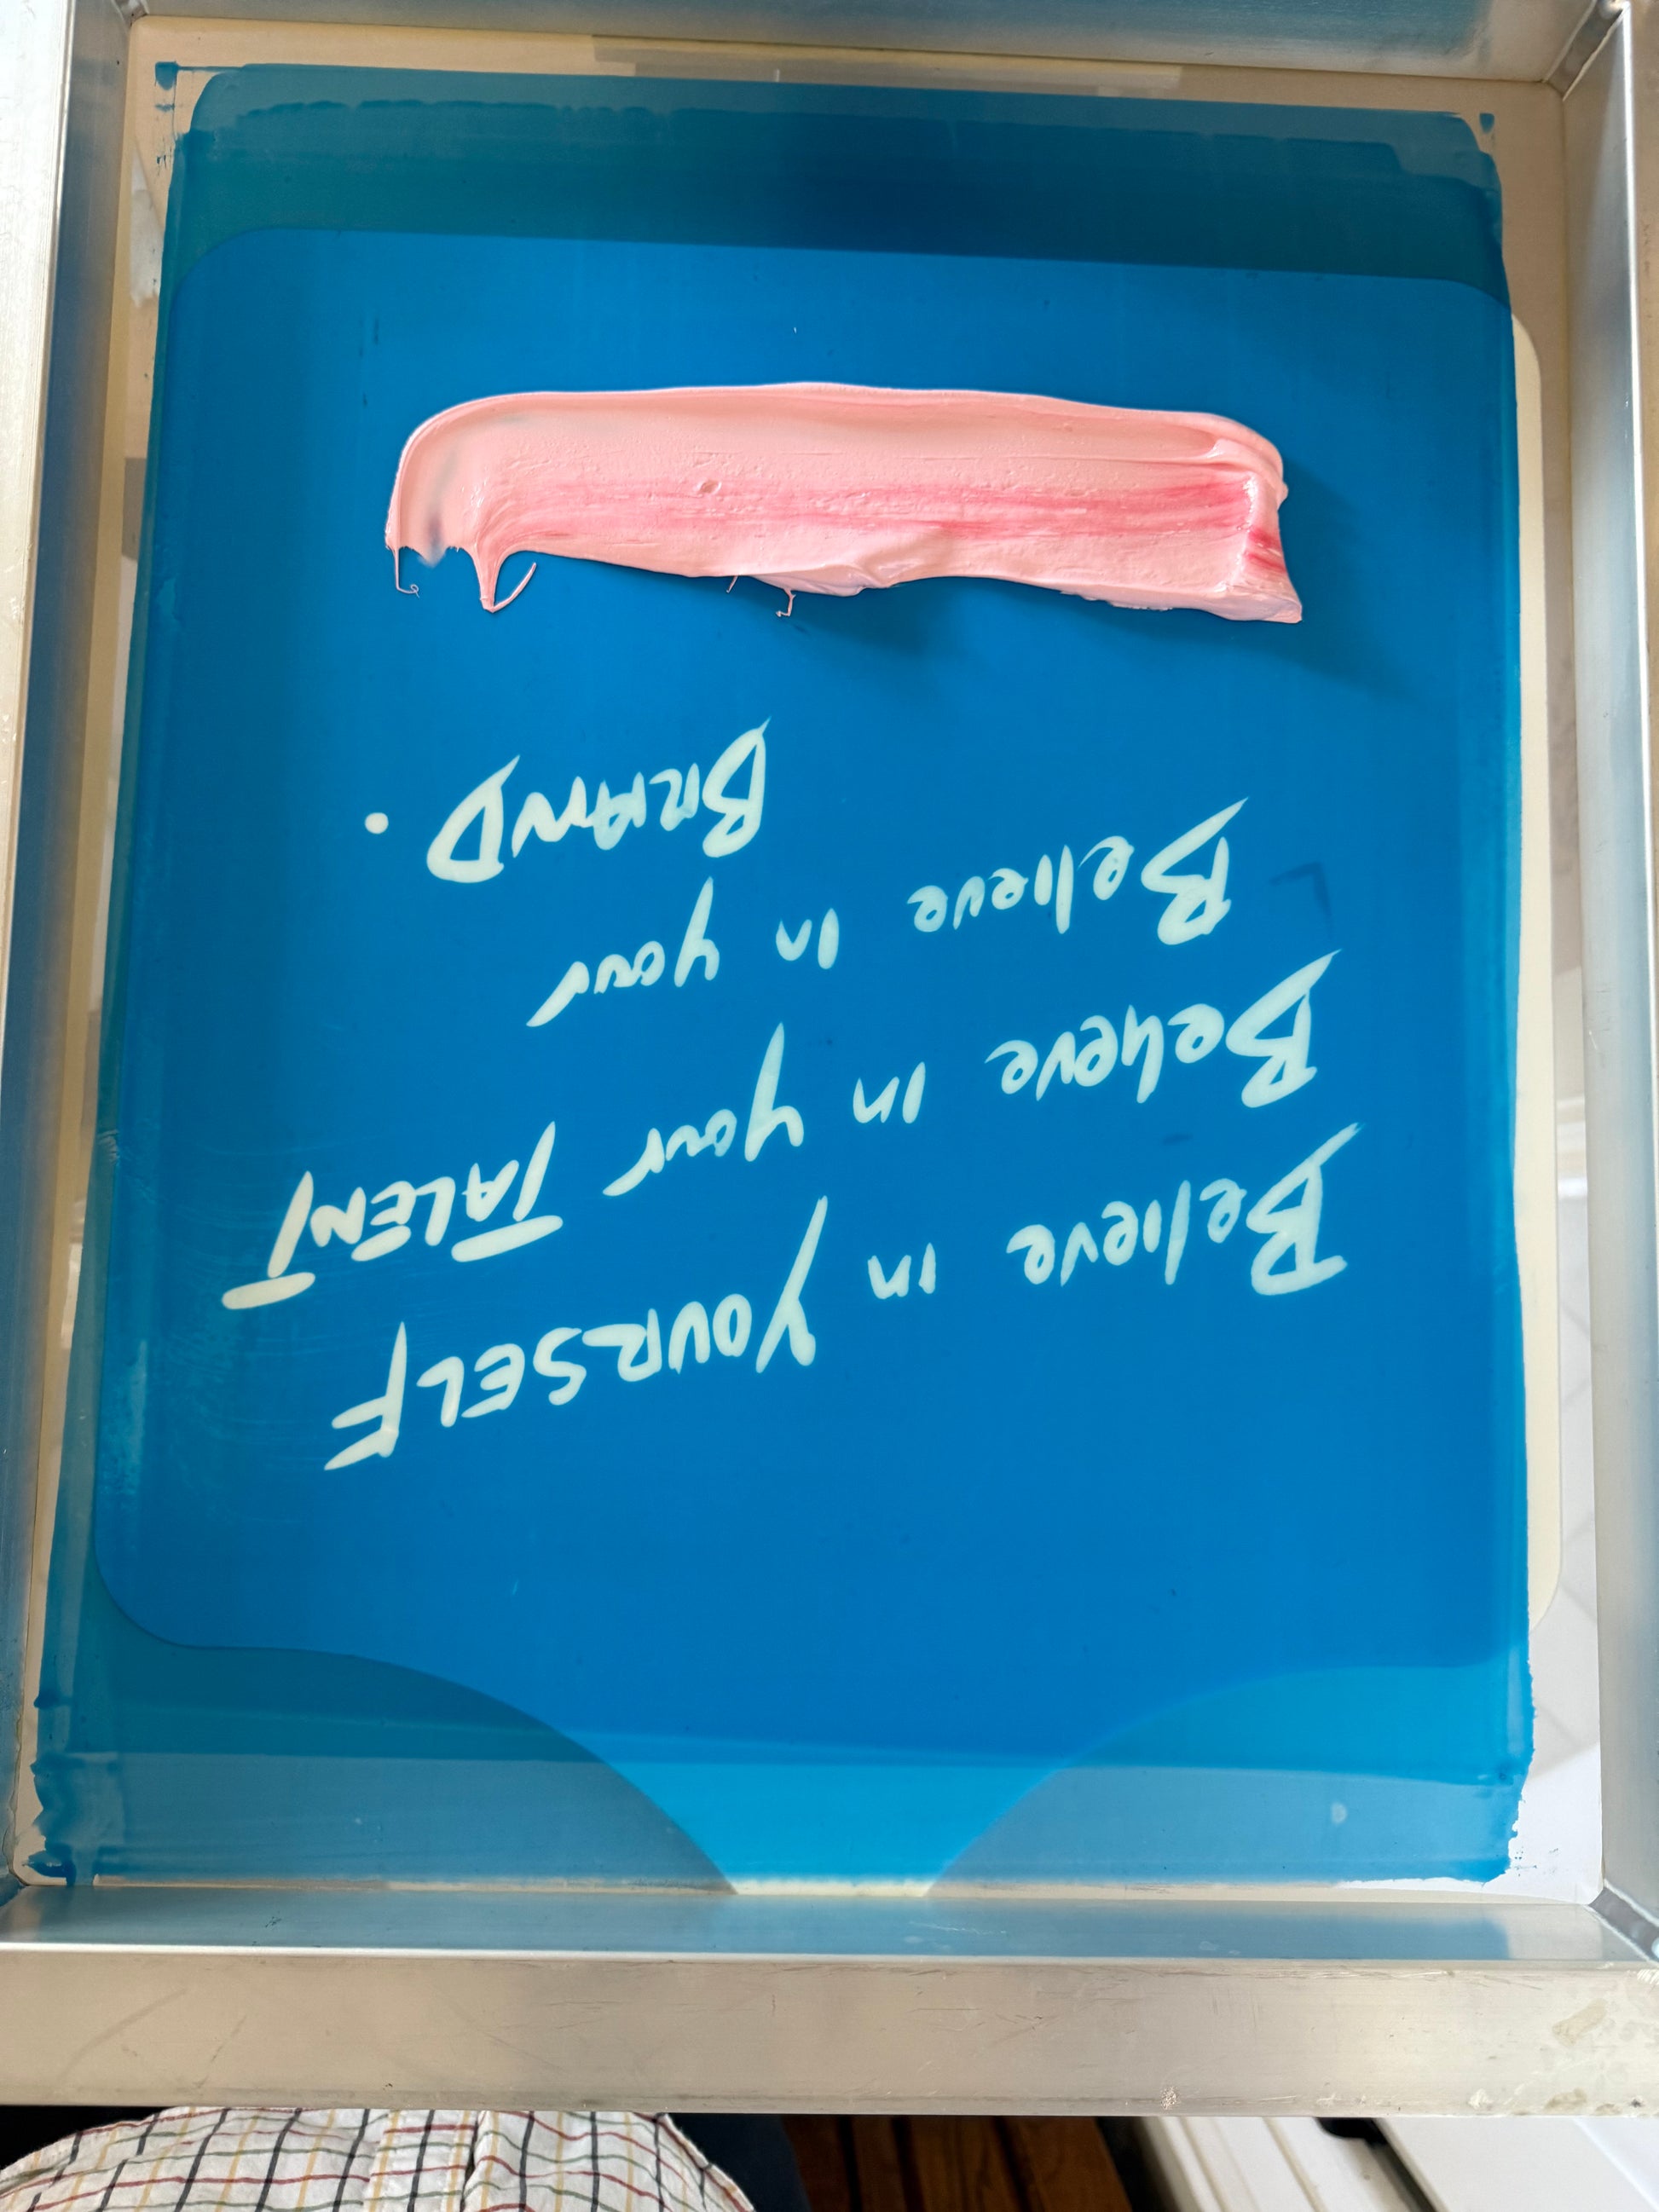 Believe in YOURSELF
Believe in your TALENT
Believe in your
BRAND.